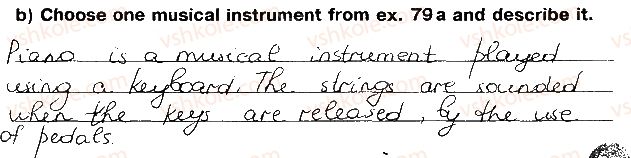 b) Choose one musical instrument from ex. 79a and describe it.
Piano is a musical instrument played
using a keyboard. The strings are sounded
when the keys are released, by the use
of pedals.